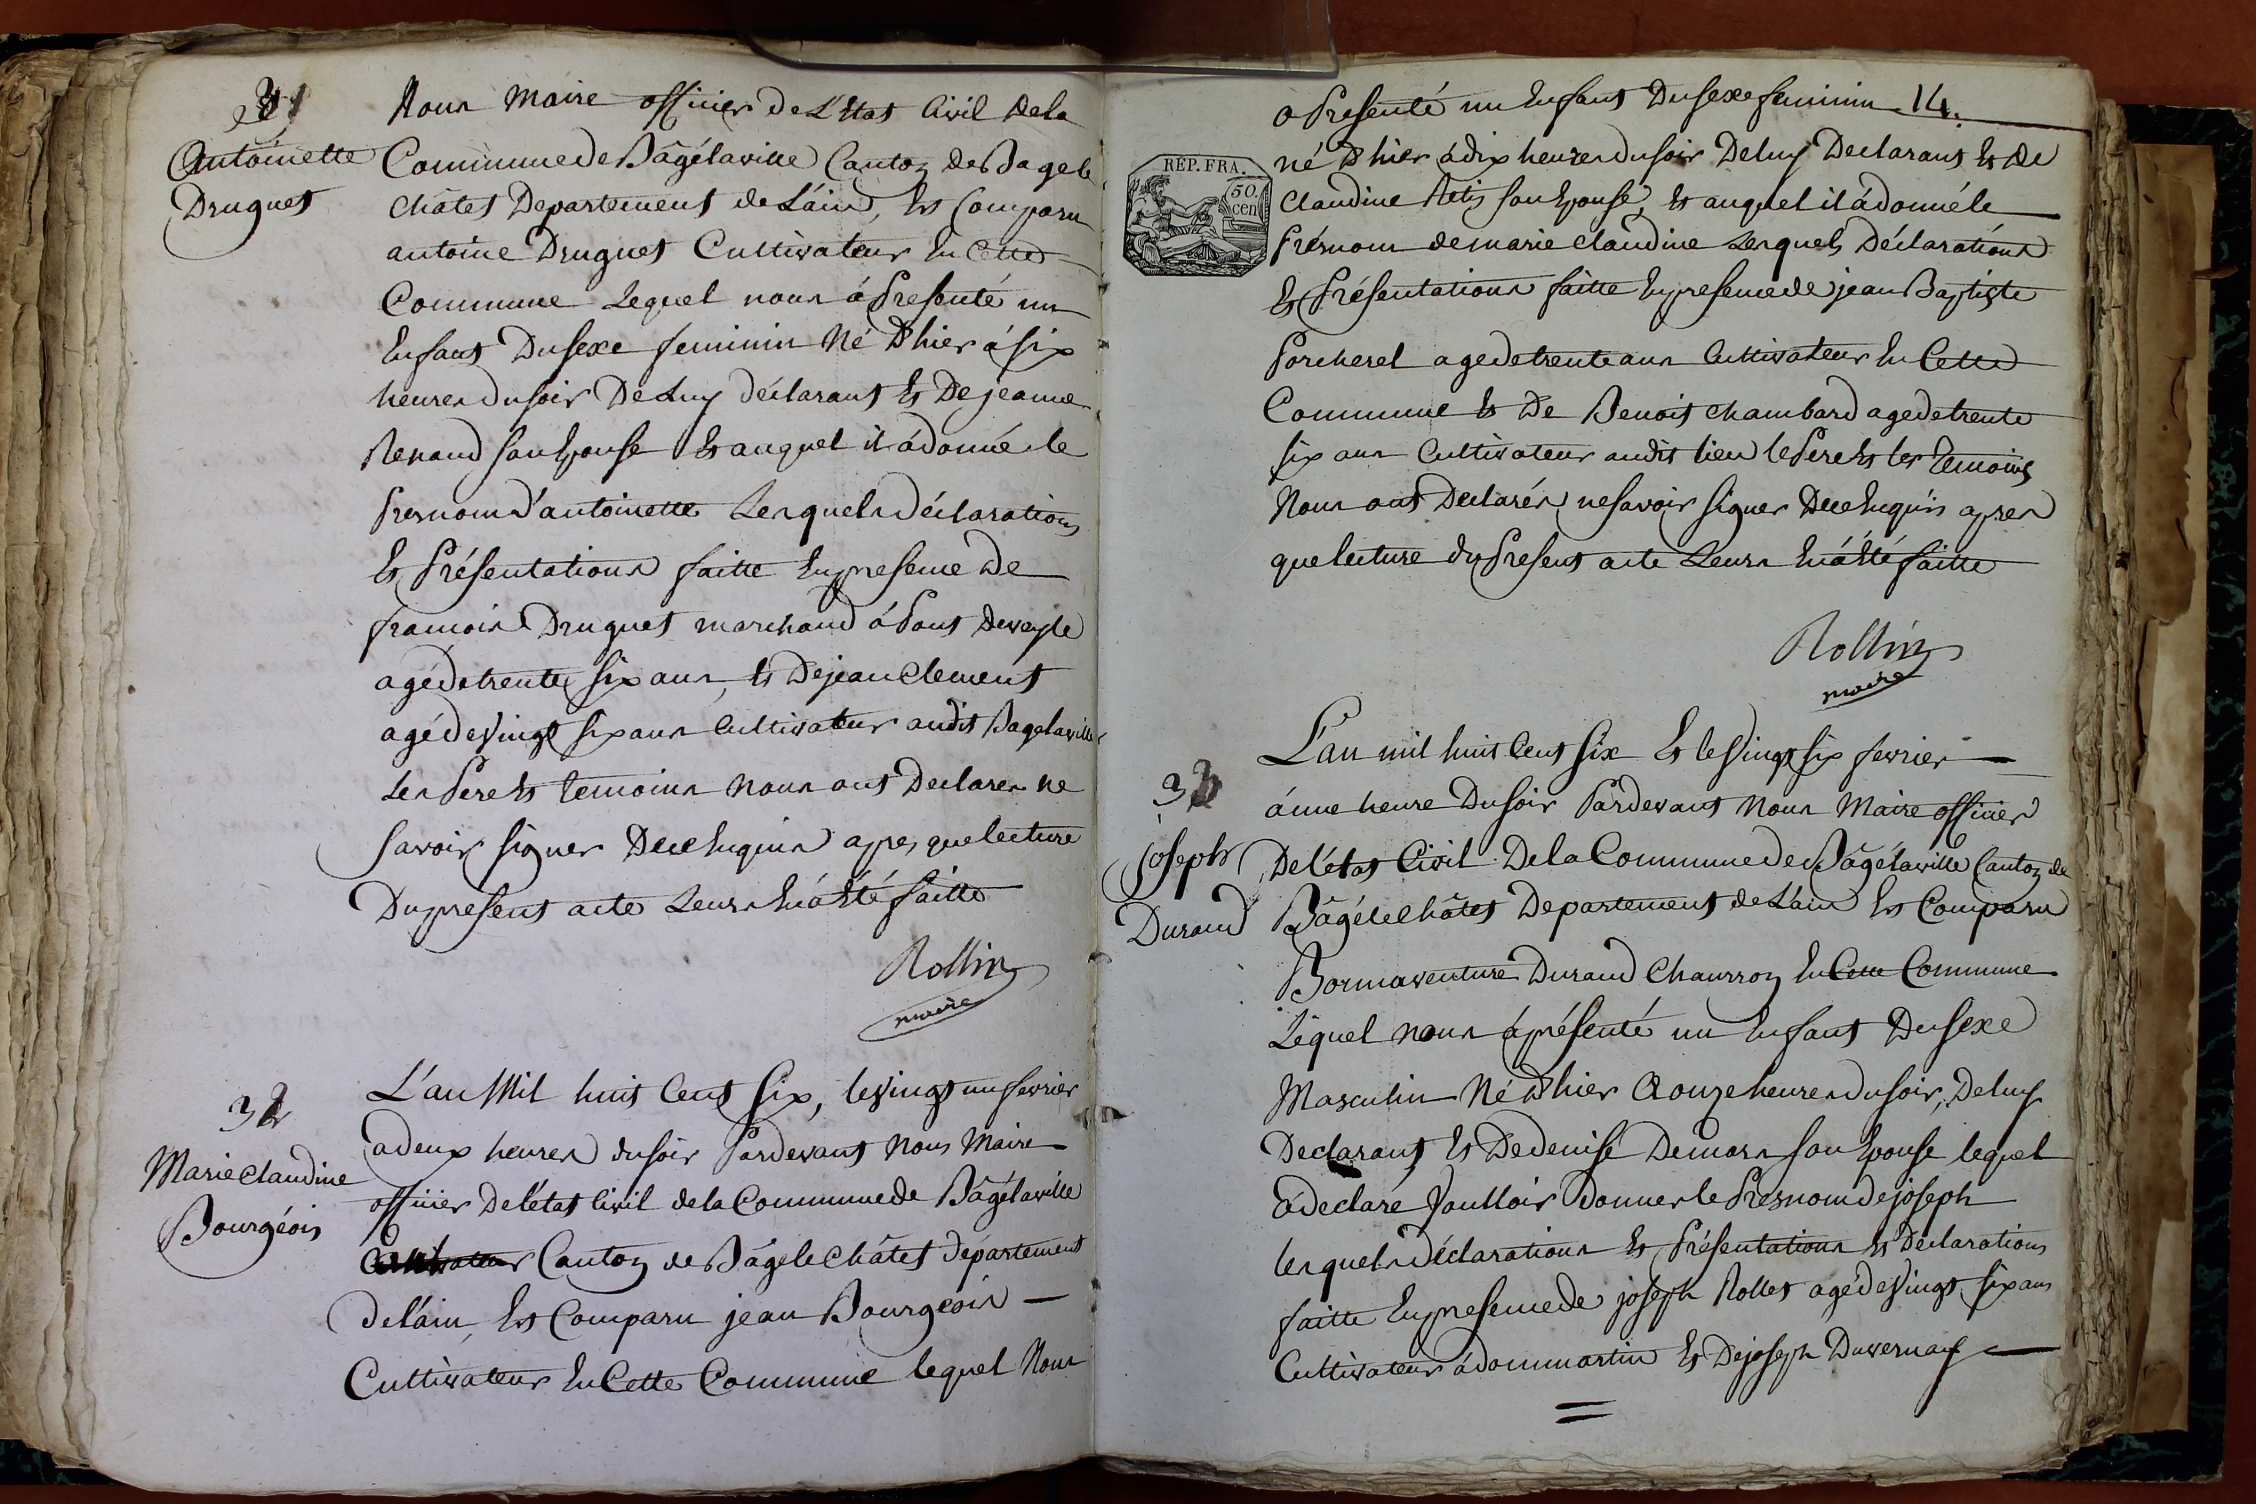 31
Antoinette
Druguet
Nous Maire officier de L'Etat Civil dela
Commune de Bâgélaville Canton de Bagele
châtet Departement de L'ain, Est Comparu
antoine Druguet Cultivateur En Cette
Commune Lequel nous à Presenté un
Enfant Du sexe feminin Né D'hier à six
heures du soir De Luy déclarant Et De jeanne
Renaud son Epouse Et auquel il à donné le
Presnom d'antoinette Lesquels déclarations
Et Présentations faitte En presence De
francois Druguet marchand à Pont deveyle
agé de trente six ans, Et De jean Clement
agé de Vingt six ans Cultivateur audit Bagelaville
Les Pere Et Temoins nous ont Declarer ne
Savoir signer De ce Enquis apres que lecture
Du present acte Leurs En à Eté faitte
Rollin
maire
32
Marie Claudine
Bourgéois
L'an Mil huit Cent six, le Vingt un fevrier
a deux heures du soir Pardevant Nous Maire
officier De l'état Civil de la Commune de Bâgélaville
Canton de Bâgele Châtet département
de l'ain, Est Comparu jean Bourgeois
Cultivateur En Cette Commune lequel Nous
a Presenté un Enfant Du sexe feminin 14.
né D'hier à dix heures du soir De luy Declarant Et De
REP. FRA.
50
cen
Claudine son Epouse, Et auquel il à donné le
Présnom de marie Claudine Lesquels Déclarations
Et Présentations faitte En presence de jean Baptiste
Porcherel age de trente ans Cultivateur En Cette
Commune Et De Benoit Chambard age de trente
six ans Cultivateur audit lieu le Pere Et les Temoins
Nous ont Declarés ne savoir signer De ce Enquis apres
que lecture du Present acte Leurs En à Eté faitte
Rollin
maire
33
joseph
Durand
L'an mil huit Cent six Et le Vingt six fevrier
à une heure Du soir Pardevant Nous Maire officier
De l'état Civil De la Commune de Bâgélaville Canton de
Bâgéle Châtet Departement de L'ain Est Comparu
Bonnaventure Durand Charron En Cette Commune
Léquel nous à présenté un Enfant Du sexe
Masculin Né D'hier à onze heures du soir, De luy
Declarant Et De denise Demars son Epouse lequel
à declaré Voulloir Donner le Presnom de joseph
lesquels Déclarations Et Présentations Et Declarations
faitte En presence de joseph Rollet agé de Vingt six ans
Cultivateur à dommartin Et De joseph Duvernay